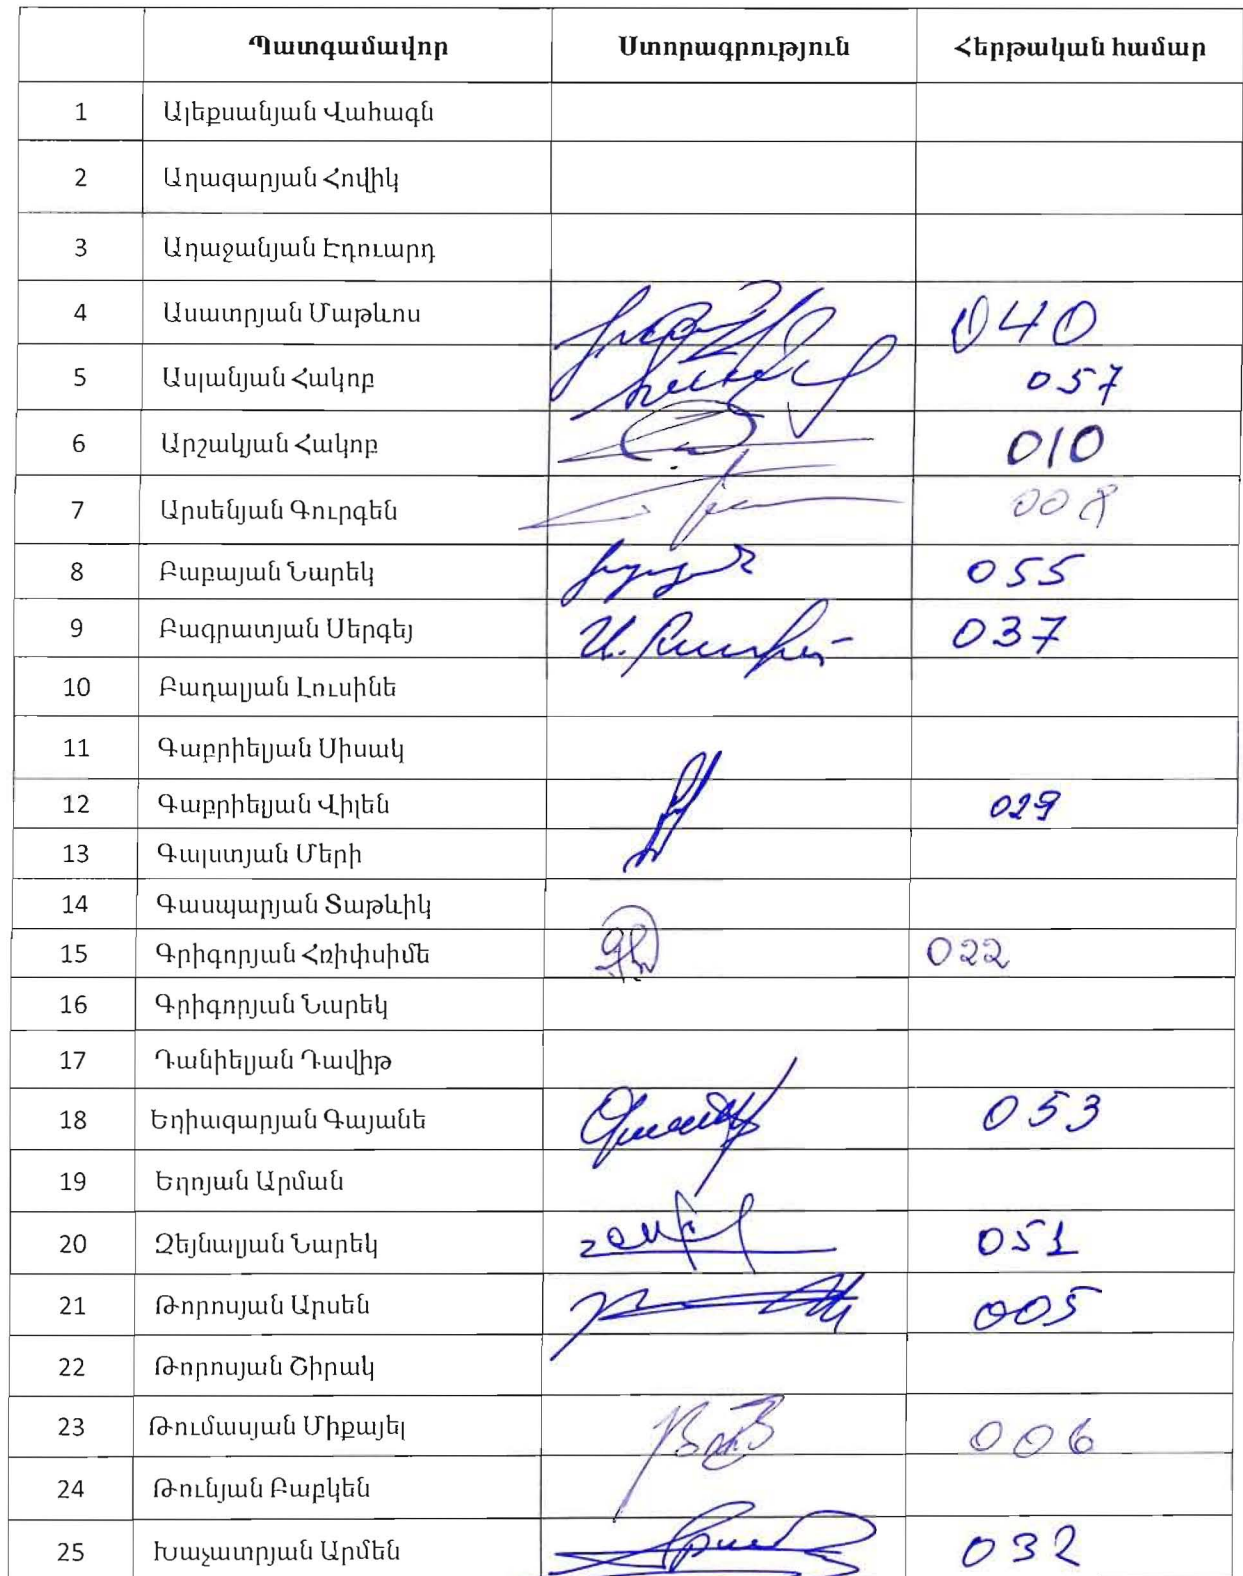 Պատգամավոր Ստորագրություն Հերթական համար
1 Ալեքսանյան Վահագն
2 Աղազարյան Հովիկ
3 Աղաջանյան Էդուարդ
4 Ասատրյան Մաթևոս 040
5 Ասլանյան Հակոբ 057
6 Արշակյան Հակոբ 010
7 Արսենյան Գուրգեն 008
8 Բաբայան Նարեկ 055
9 Բագրատյան Սերգեյ 037
10 Բադալյան Լուսինե
11 Գաբրիելյան Սիսակ
12 Գաբրիելյան Վիլեն 029
13 Գալստյան Մերի
14 Գասպարյան Տաթևիկ
15 Գրիգորյան Հռիփսիմե 022
16 Գրիգորյան Նարեկ
17 Դանիելյան Դավիթ
18 Եղիազարյան Գայանե 053
19 Եղոյան Արման
20 Զեյնալյան Նարեկ 051
21 Թորոսյան Արսեն 005
22 Թորոսյան Շիրակ
23 Թումասյան Միքայել 006
24 Թունյան Բաբկեն
25 Խաչատրյան Արմեն 032